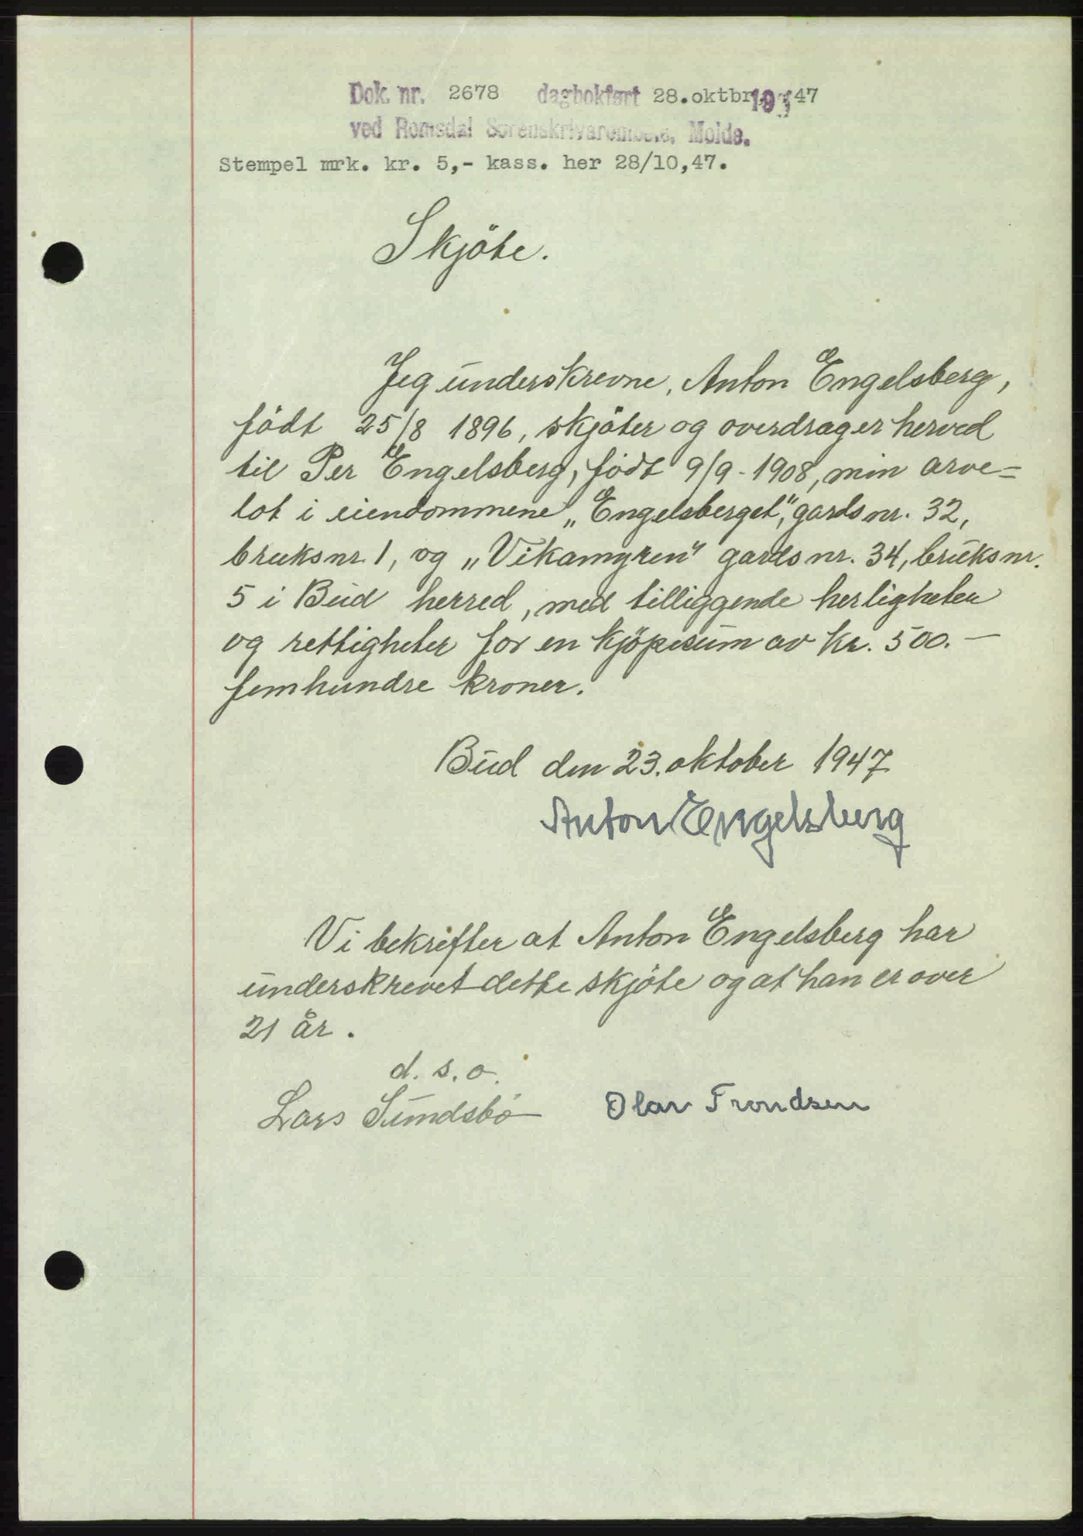 Dok. nr. 2678 dagbokført 28.oktbr. 193 47
ved Romsdal Sorenskrivarembete, Molde.
Stempel mrk. kr. 5,- kass. her 28/10,47.
Skjöte.
Jeg underskrevne, Anton Engelsberg,
födt 25/8 1896, skjöter og overdrager herved
til Per Engelsberg, födt 9/9-1908, min arve=
lot i eiendommene „Engelsberget,“ gardsnr. 32,
bruksnr. 1, og „Vikamyren“ gardsnr. 34, bruksnr.
5 i Bud herred, med tilliggende herligheter
og rettigheter for en kjöpesum av kr. 500.—
femhundre kroner.
Bud den 23. oktober 1947
Anton Engelsberg
Vi bekrefter at Anton Engelsberg har
underskrevet dette skjöte og at han er over
21 år.
d. s. o.
Lars Sundsbö Olav Trondsen